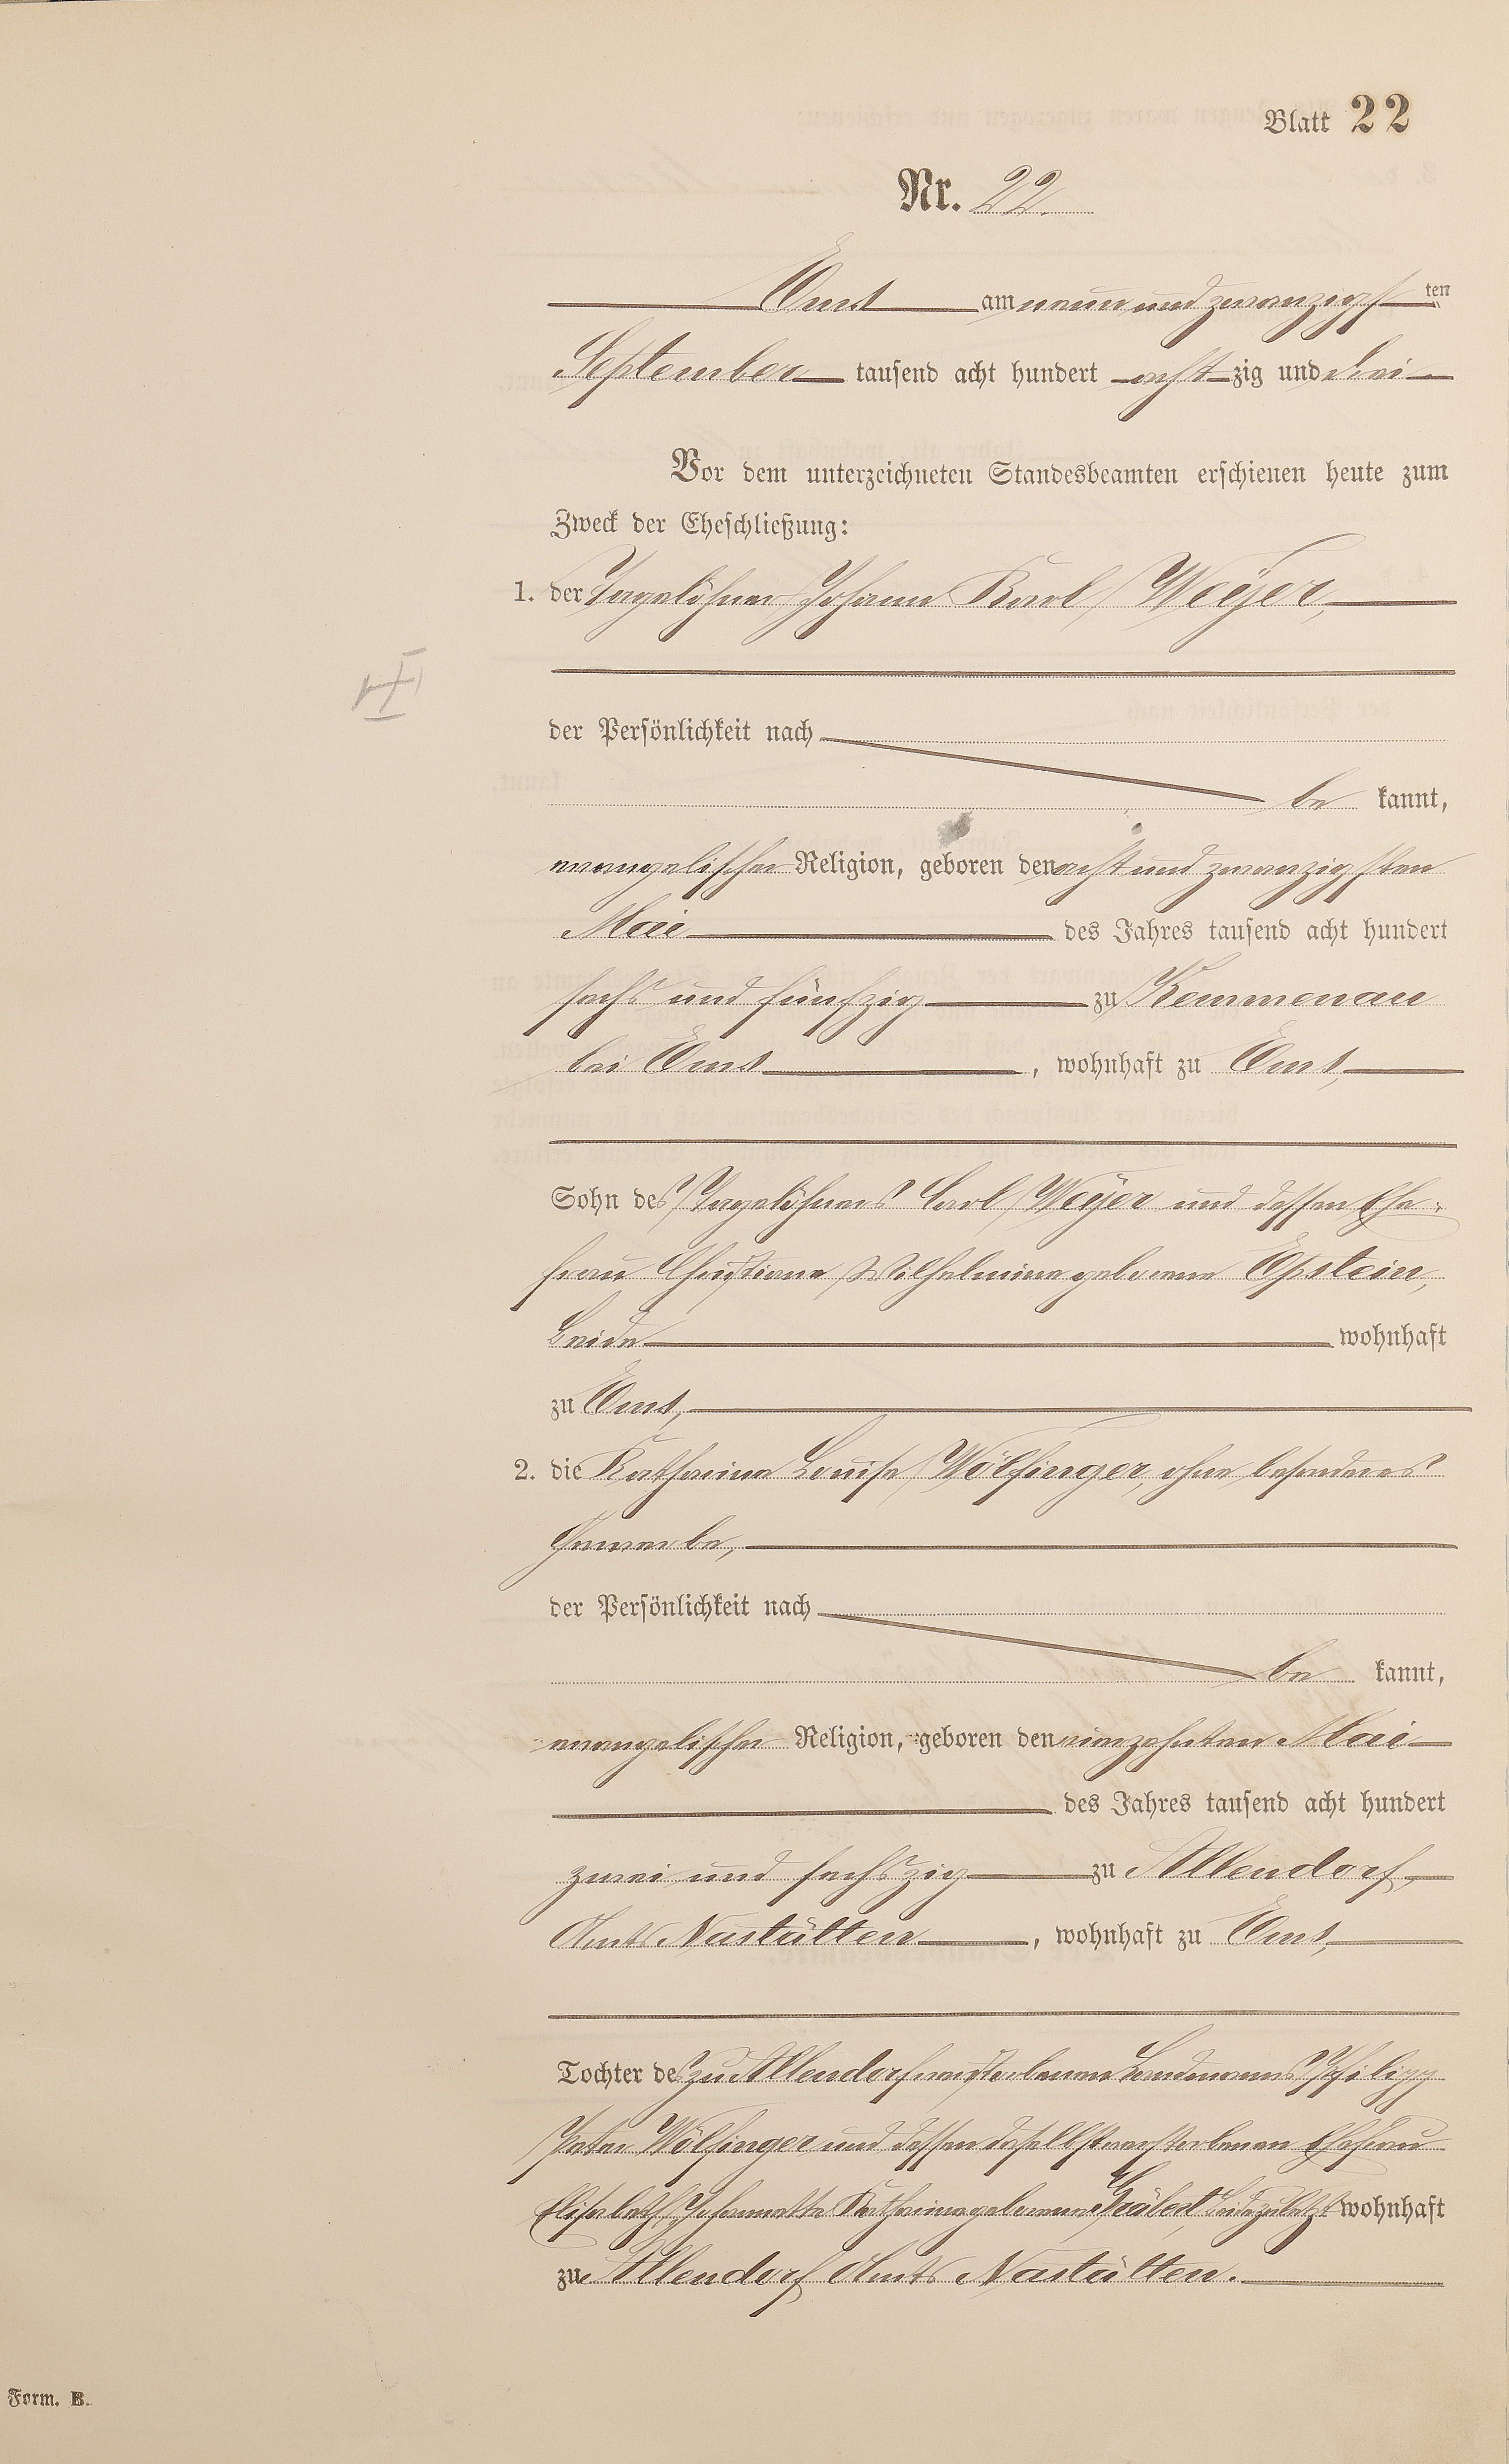 Blatt 22
Nr. 22.
Ems am neun und zwanzigsten
September tausend acht hundert achtzig und drei
Vor dem unterzeichneten Standesbeamten erschienen heute zum
Zweck der Eheschließung:
1. der Tagelöhner Johann Karl Weyer,
der Persönlichkeit nach
be kannt,
evangelischer Religion, geboren den acht und zwanzigsten
Mai des Jahres tausend acht hundert
sechs und fünfzig zu Kemmenau
bei Ems, wohnhaft zu Ems,
Sohn des Tagelöhners Carl Weyer und dessen Ehe-
frau Christiane Wilhelmine geborene Epstein,
beide wohnhaft
zu Ems,
2. die Katharine Louise Wölfinger, ohne besonderes
Gewerbe,
der Persönlichkeit nach
be kannt,
evangelischer Religion, geboren den Mai
des Jahres tausend acht hundert
zwei und sechszig zu Allendorf,
Amts Nastätten, wohnhaft zu Ems,
Tochter des zu Allendorf verstorbenen Landmanns Philipp
Peter Wölfinger und dessen daselbst verstorbenen Ehefrau
Elisabeth Johannette Katharine geborene beide zuletzt wohnhaft
zu Allendorf Amts Nastätten.
Form. B.